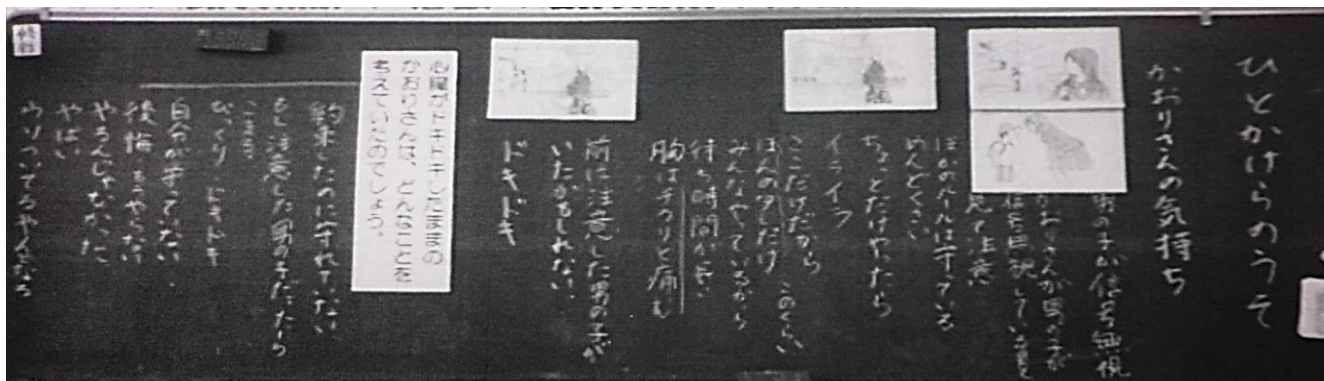 ひとかけらのうそ
かおりさんの気持ち
男の子が信号無視
かおりさんが男の子が
信号無視している
見て注意
ほかのルールは守っている
めんどくさい
ちょっとだけやったら
イライラ
ここだけだから このくらい
ほんの少しだけ
みんなやっているから
待ち時間が
胸はチクリと痛む
前に注意した男の子が
いたかもしれない
ドキドキ
心臓がドキドキしたままの
かおりさんは、どんなことを
考えていたのでしょう。
約束したのに守れていない
もし注意した男の子だったら
こまる
びっくり ドキドキ
自分が守っていない
後悔 もうやらない
やるんじゃなかった
やばい